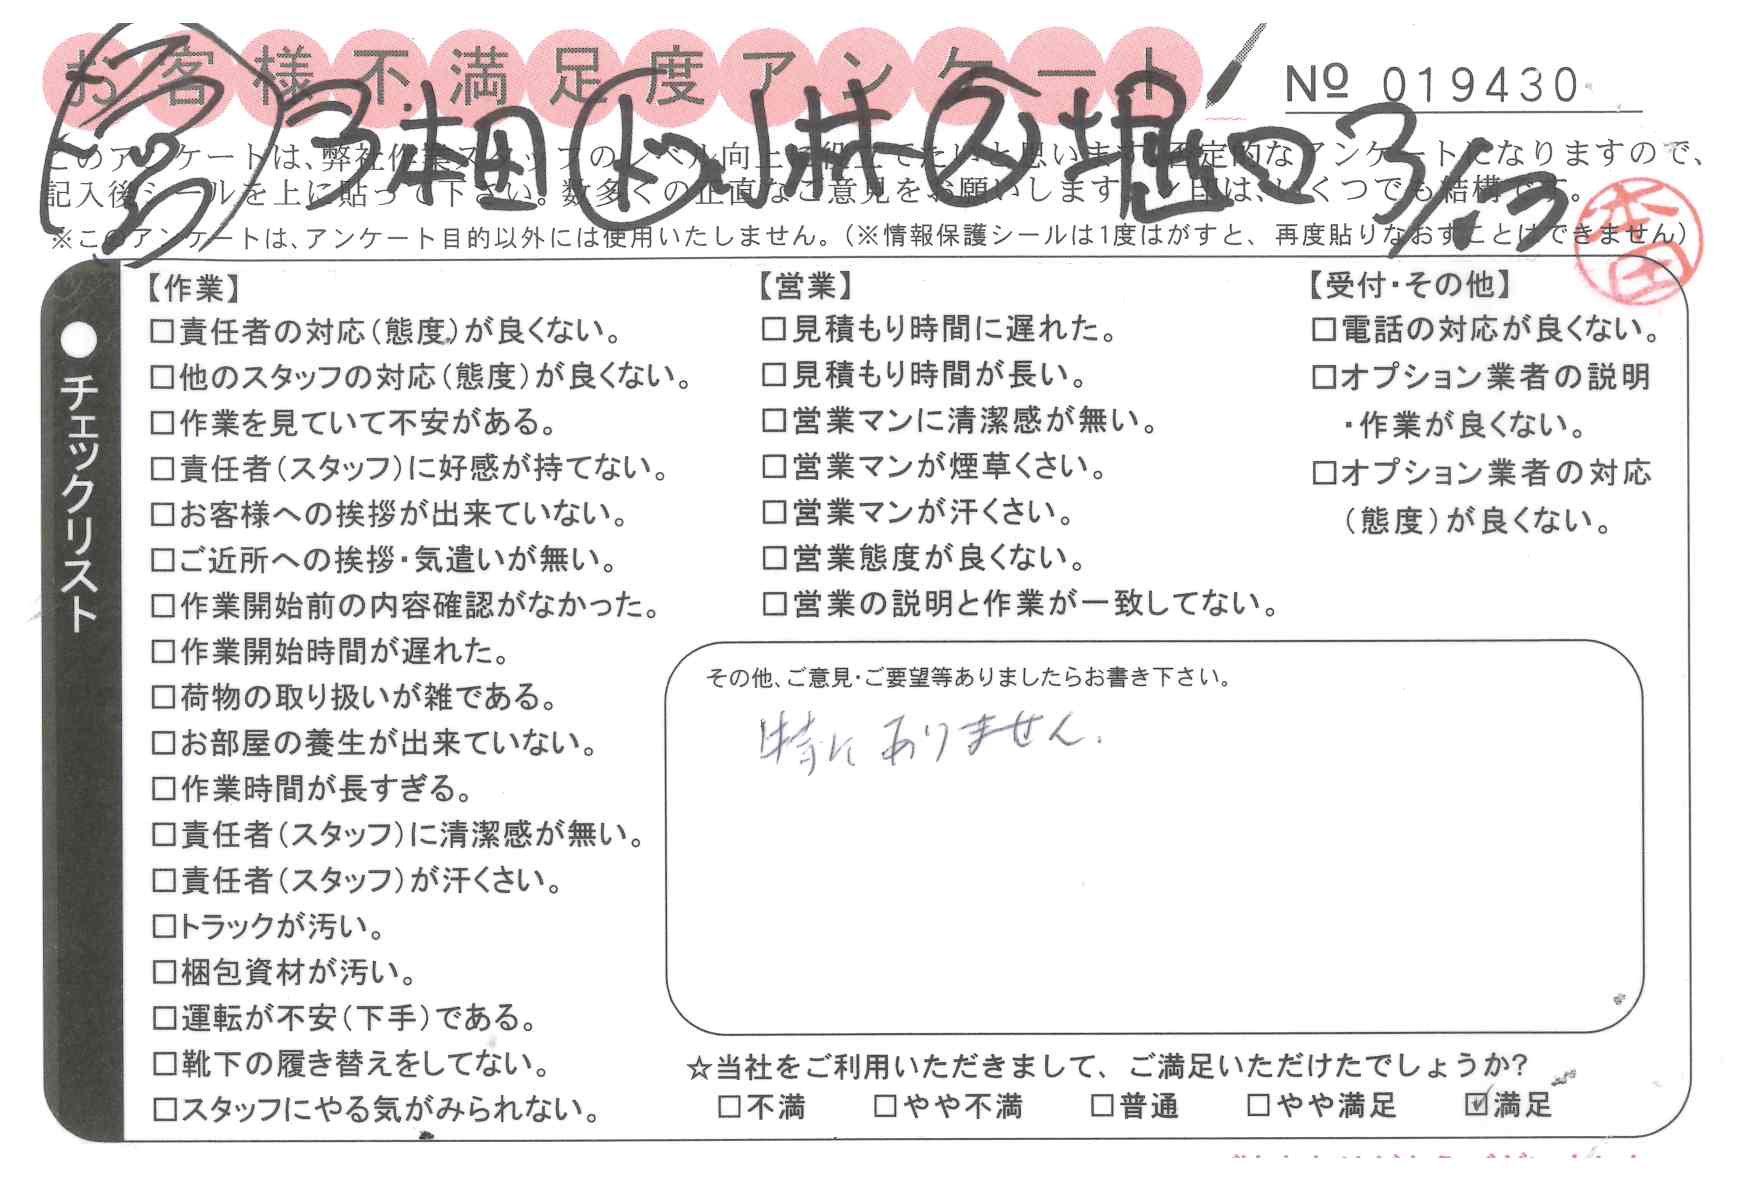 お客様不満足度アンケート
№ 019430
このアンケートは、弊社作業スタッフのレベル向上に役立てたいと思います。否定的なアンケートになりますので、
記入後シールを上に貼って下さい。数多くの正直なご意見をお願いします。レ印は、いくつでも結構です。
※このアンケートは、アンケート目的以外には使用いたしません。(※情報保護シールは1度はがすと、再度貼りなおすことはできません)
小林 樋口 3/13
本田
●チェックリスト
【作業】
□責任者の対応(態度)が良くない。
□他のスタッフの対応(態度)が良くない。
□作業を見ていて不安がある。
□責任者(スタッフ)に好感が持てない。
□お客様への挨拶が出来ていない。
□ご近所への挨拶・気遣いが無い。
□作業開始前の内容確認がなかった。
□作業開始時間が遅れた。
□荷物の取り扱いが雑である。
□お部屋の養生が出来ていない。
□作業時間が長すぎる。
□責任者(スタッフ)に清潔感が無い。
□責任者(スタッフ)が汗くさい。
□トラックが汚い。
□梱包資材が汚い。
□運転が不安(下手)である。
□靴下の履き替えをしてない。
□スタッフにやる気がみられない。
【営業】
□見積もり時間に遅れた。
□見積もり時間が長い。
□営業マンに清潔感が無い。
□営業マンが煙草くさい。
□営業マンが汗くさい。
□営業態度が良くない。
□営業の説明と作業が一致してない。
【受付・その他】
□電話の対応が良くない。
□オプション業者の説明
・作業が良くない。
□オプション業者の対応
(態度)が良くない。
その他、ご意見・ご要望等ありましたらお書き下さい。
特にありません.
☆当社をご利用いただきまして、ご満足いただけたでしょうか?
□不満 □やや不満 □普通 □やや満足 ☑満足